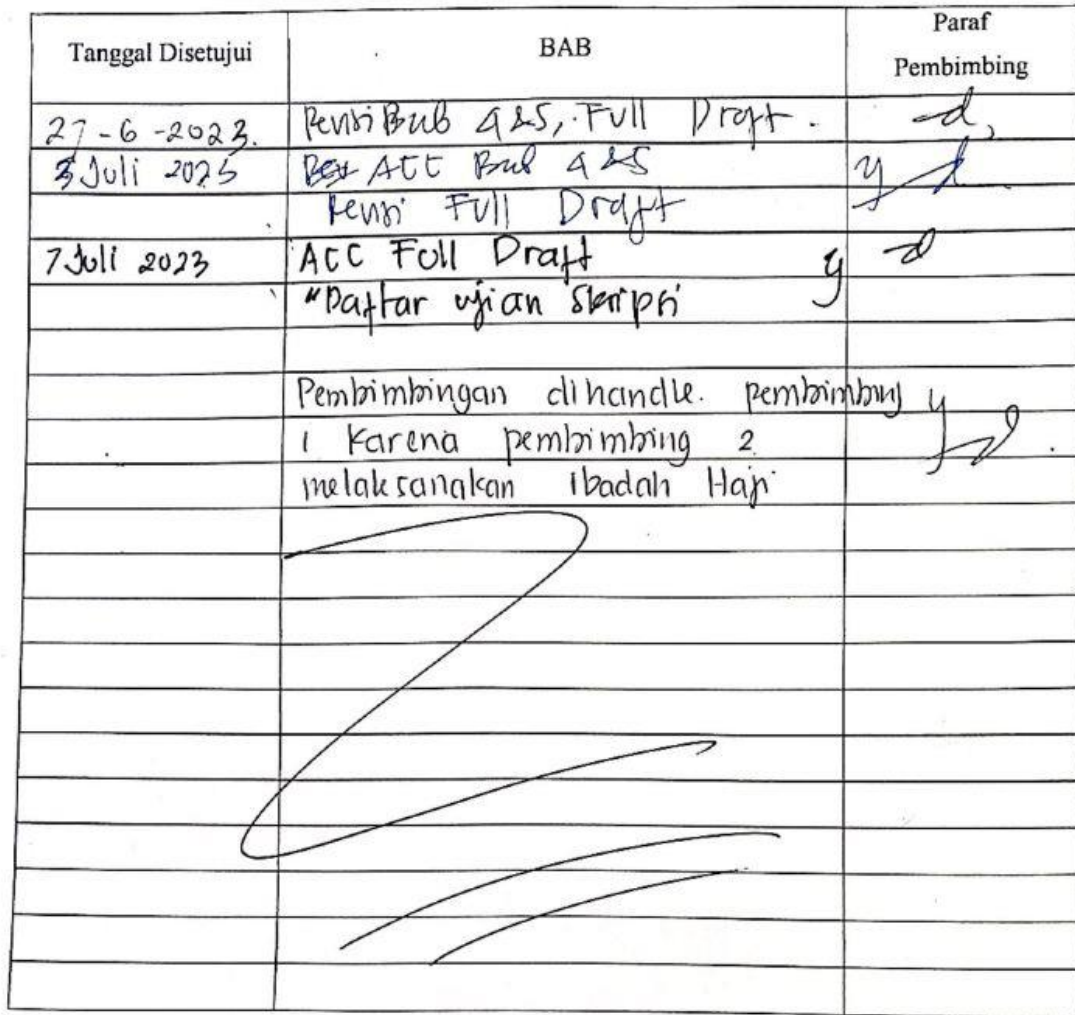 Tanggal Disetujui
BAB
Paraf
Pembimbing
27-6-2023. Revisi Bab 4&5, Full Draft.
3 Juli 2023 ACC Bab 4&5
Revisi Full Draft
7 Juli 2023 ACC Full Draft
"Daftar ujian Skripsi
Pembimbingan dihandle. pembimbing
1 karena pembimbing 2
melaksanakan Ibadah Haji